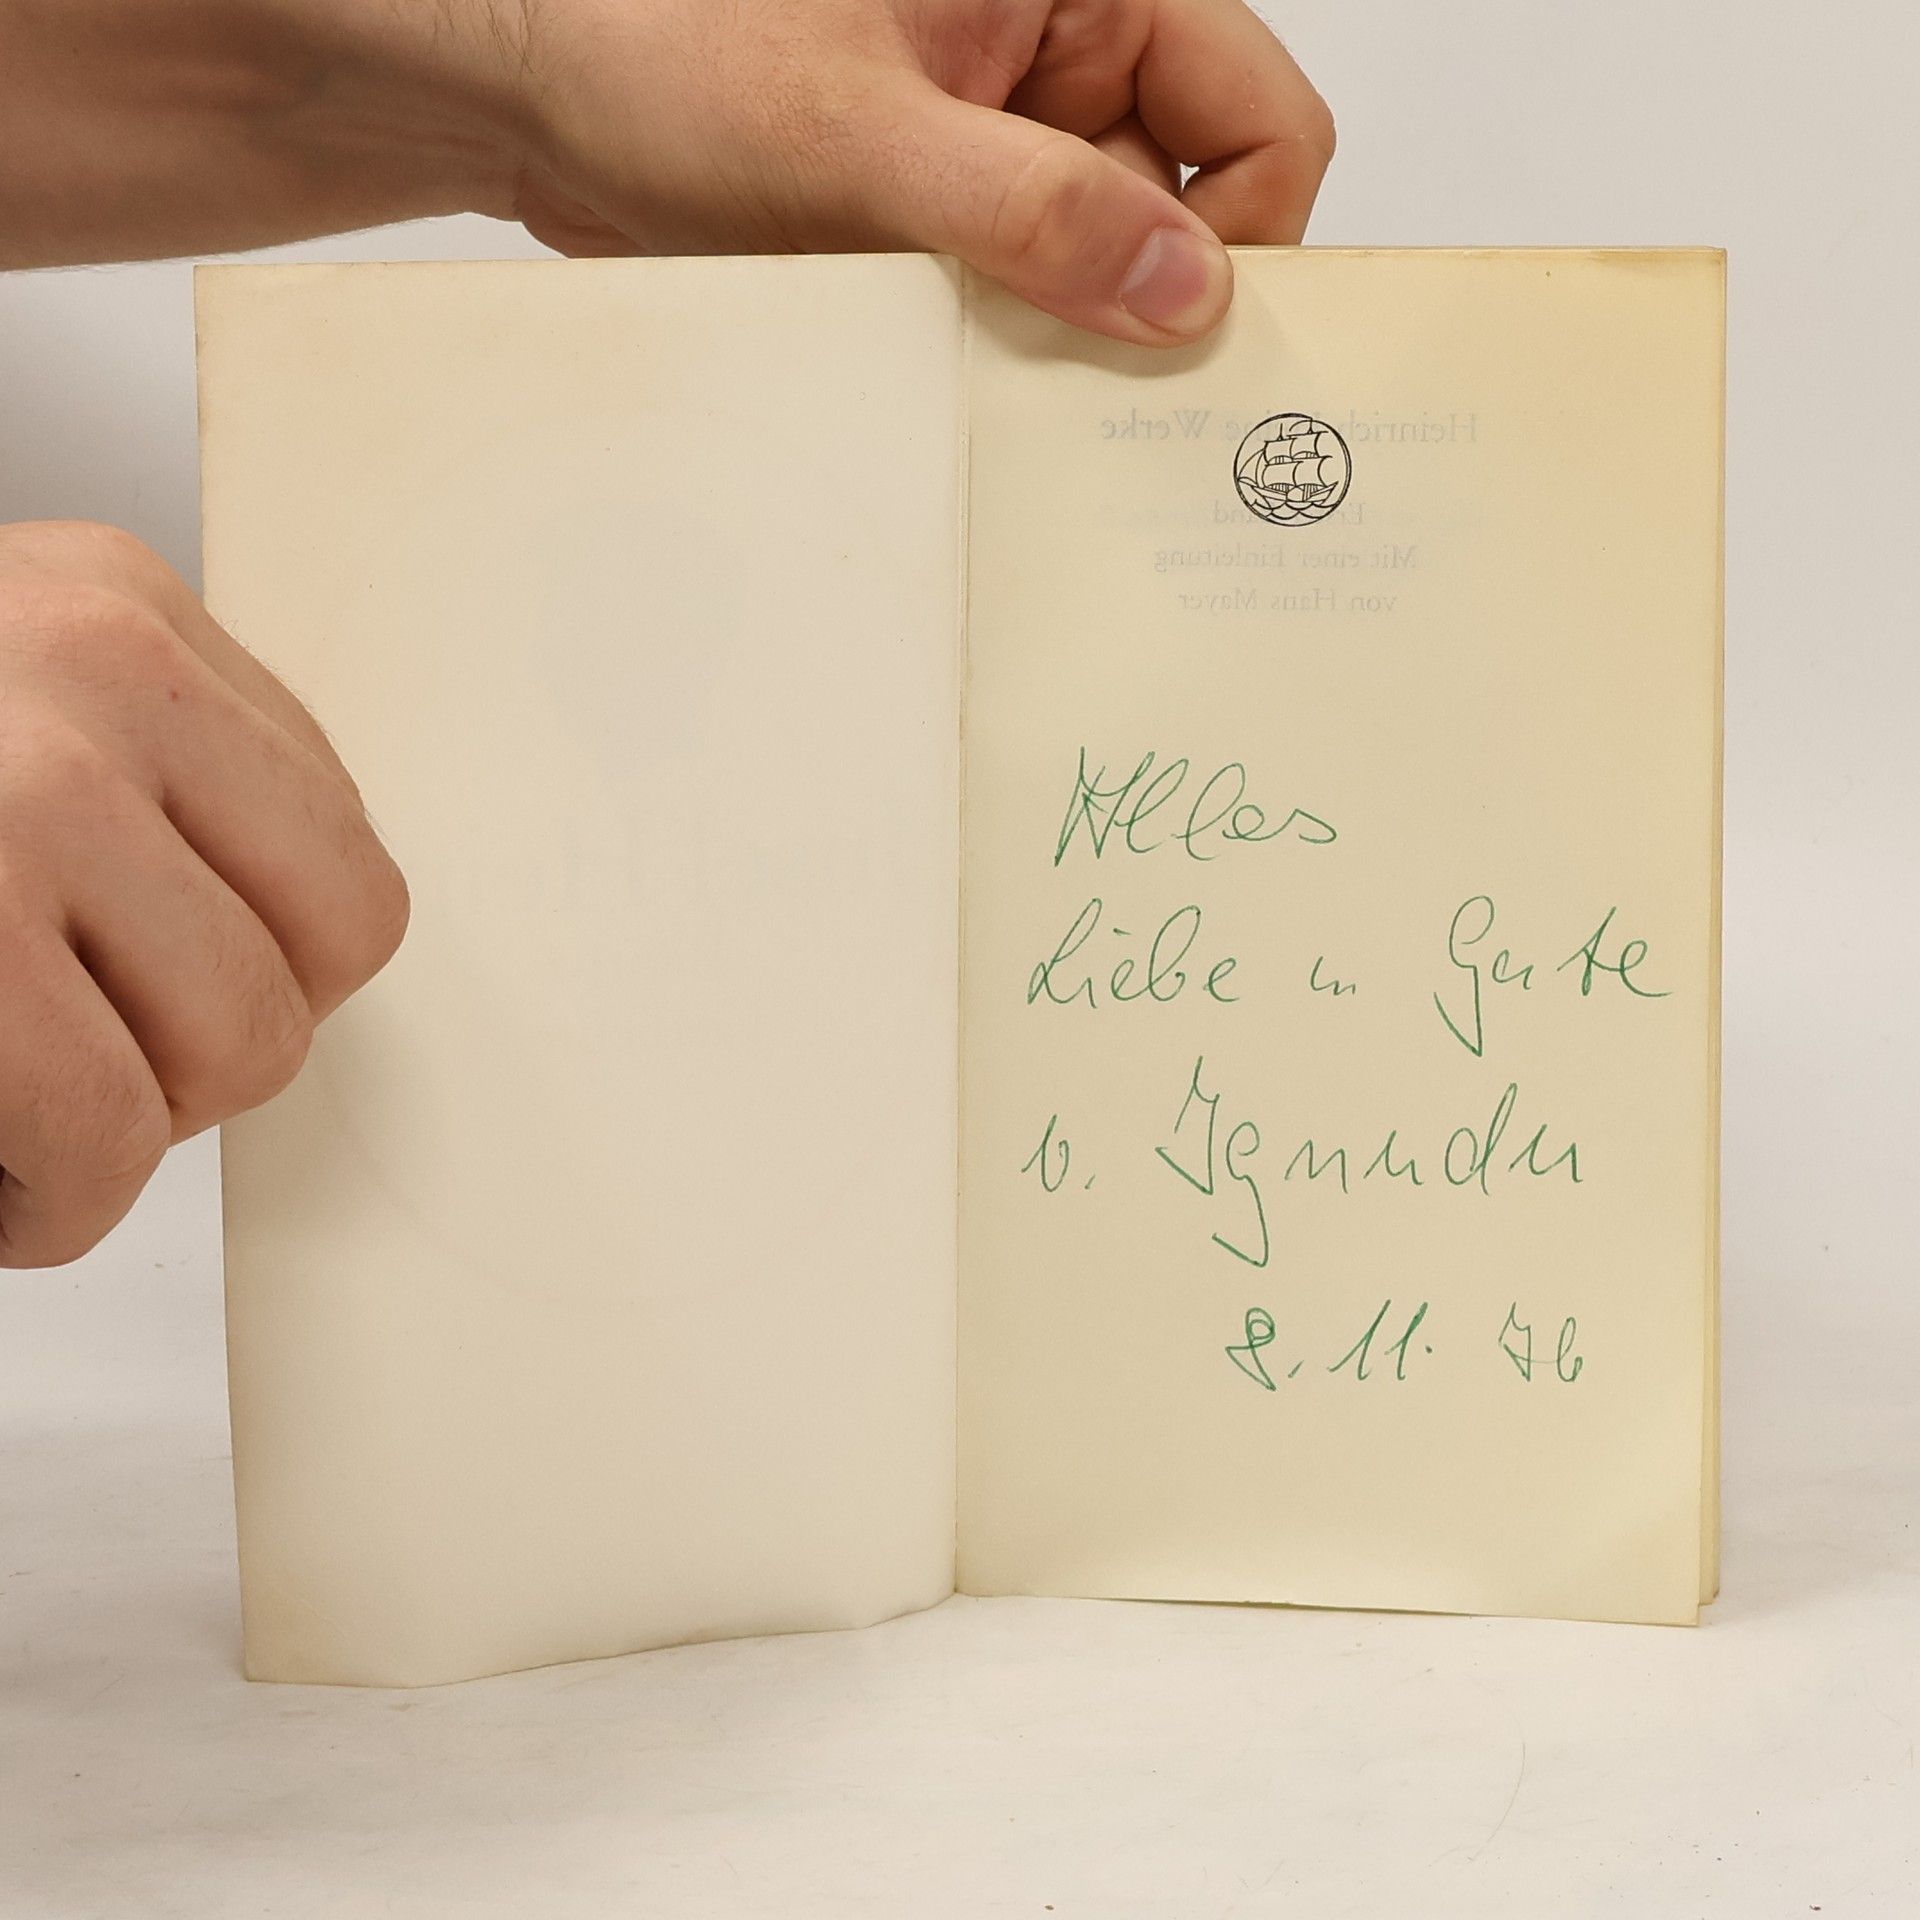 Heinrich Heine Werke
Erster Band
Mit einer Einleitung
von Hans Mayer
Alles
Liebe u Gute
v.
8. 11. 76